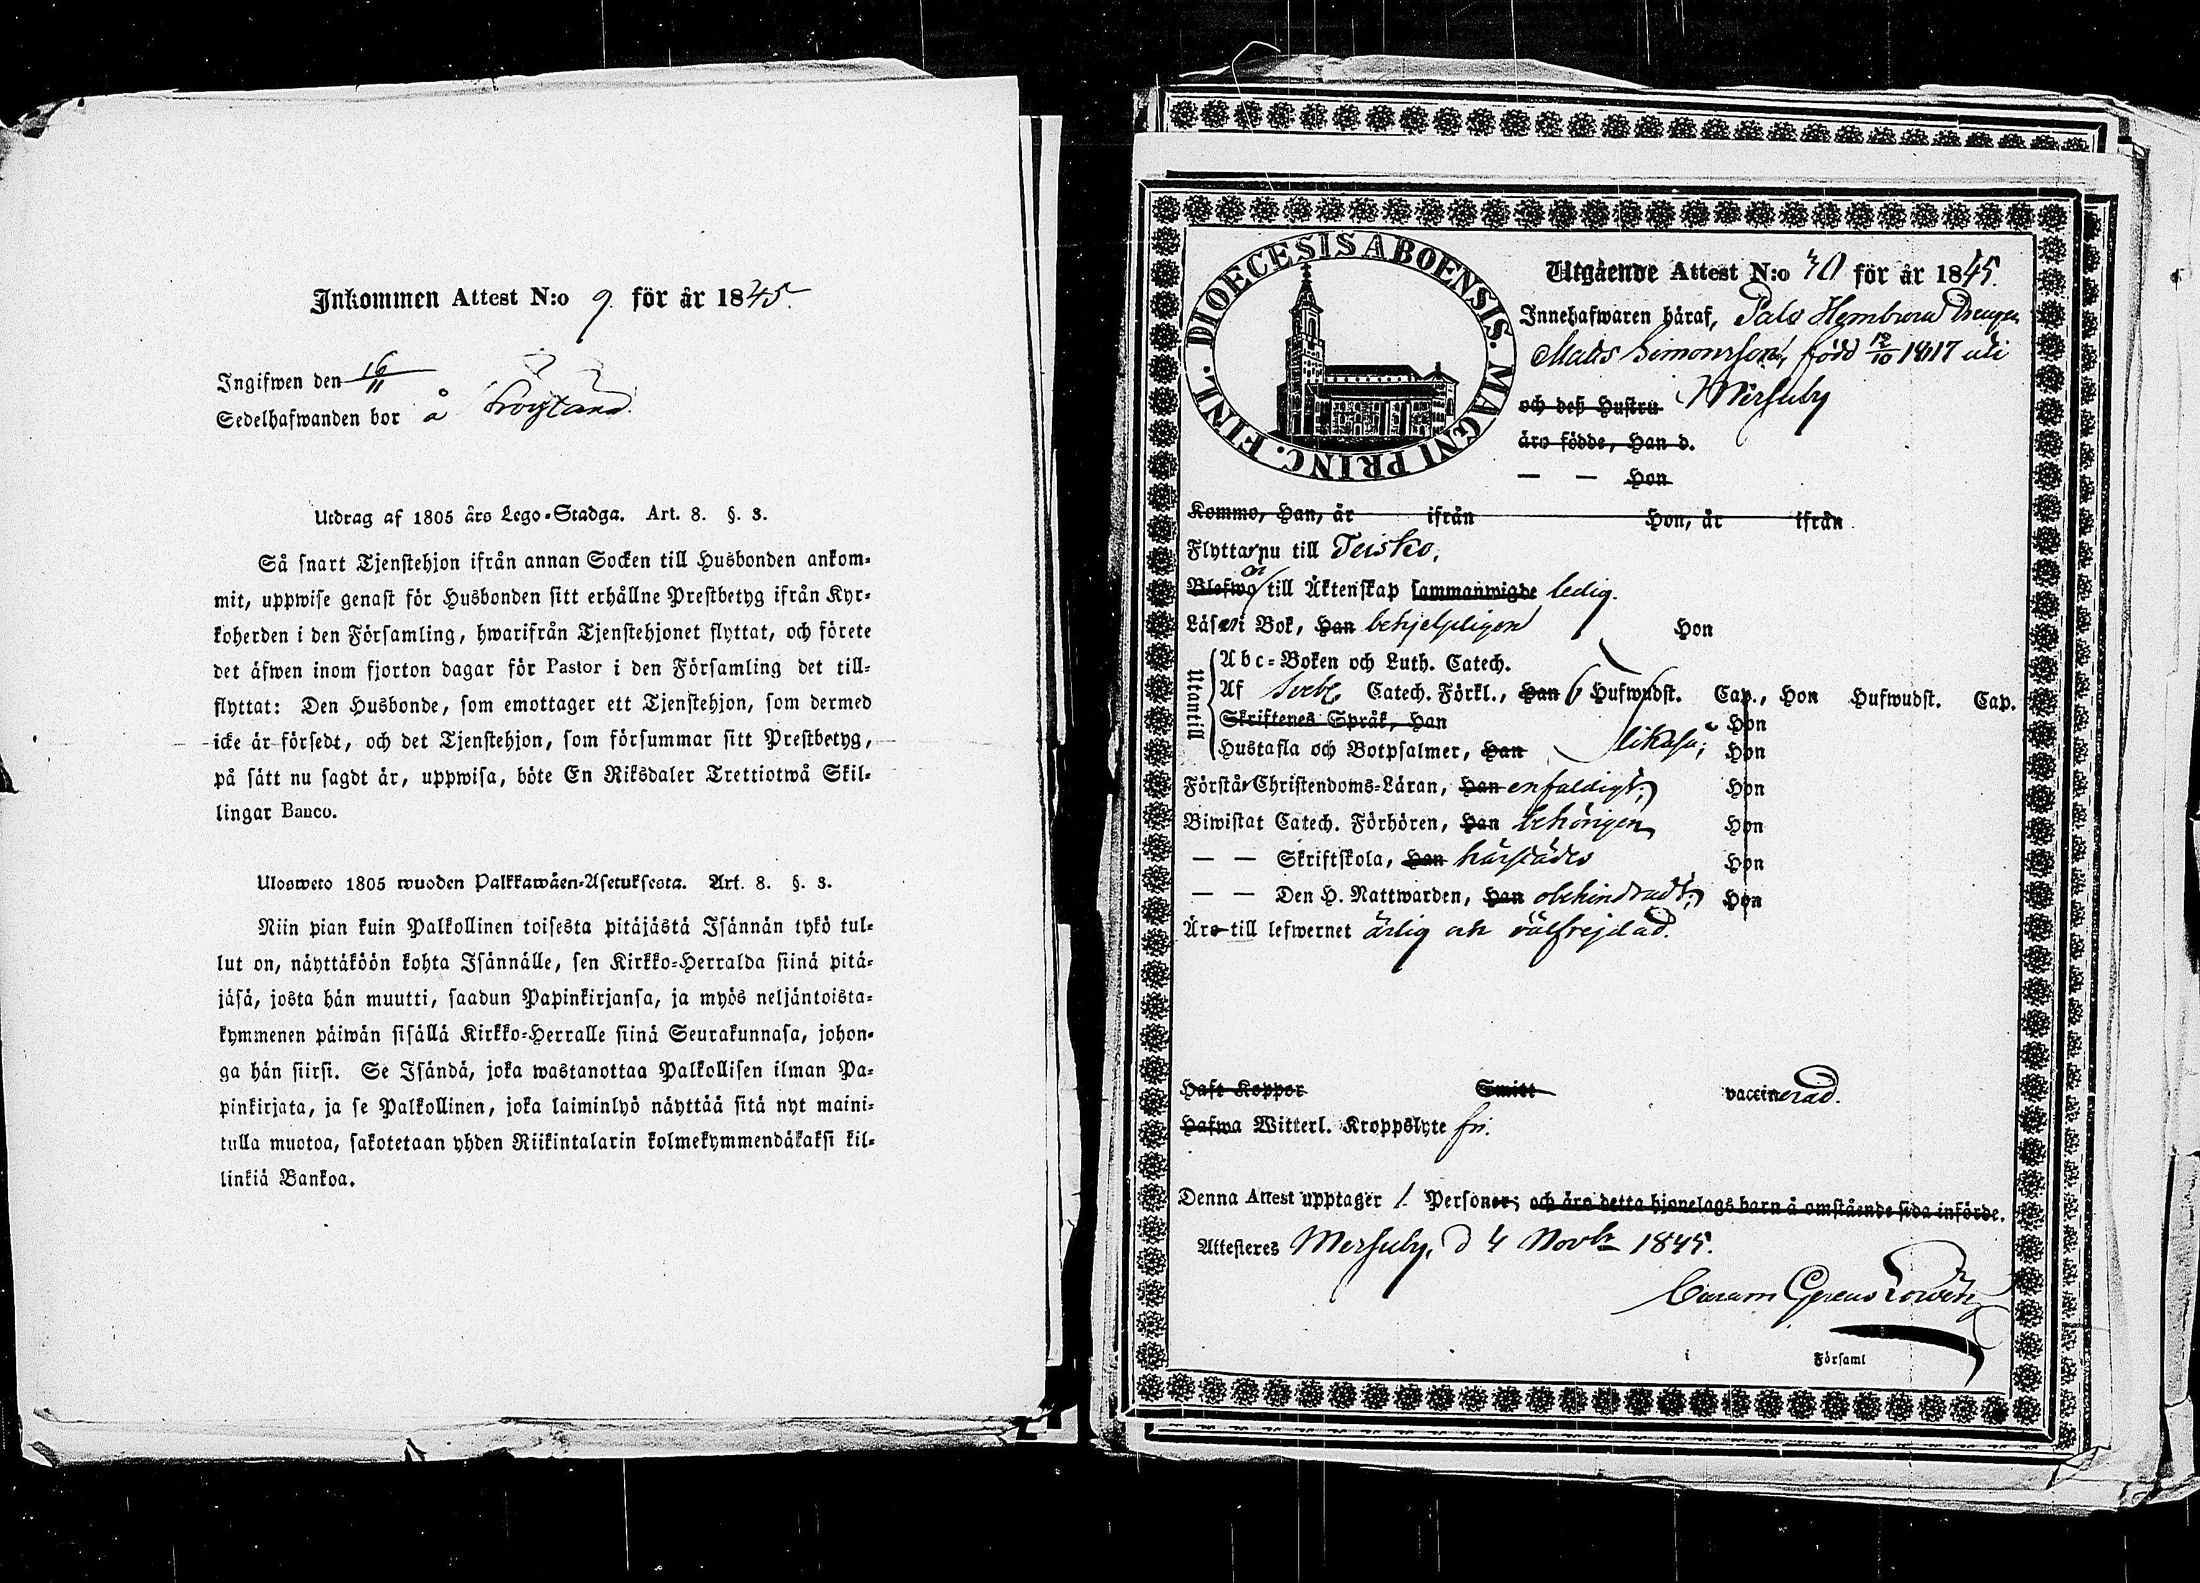 Inkommen Attest N:o 9. för år 1845.
Ingifwen den 16/11
Sedelhafwanden bor å
Utdrag af 1805 års Lego-Stadga. Art. 8. §. 3.
Så snart Tjenstehjon ifrån annan Socken till Husbonden ankom-
mit, uppwise genast för Husbonden sitt erhållne Prestbetyg ifrån Kyr-
koherden i den Församling, hwarifrån Tjenstehjonet flyttat, och förete
det äfwen inom fjorton dagar för Pastor i den Församling det till-
flyttat: Den Husbonde, som emottager ett Tjenstehjon, som dermed
icke är försedt, och det Tjenstehjon, som försummar sitt Prestbetyg,
på sätt nu sagdt är, uppwisa, böte En Riksdaler Trettiotwå Skil-
lingar Banco.
Ulosweto 1805 wuoden Palkkawäen-Asetuksesta. Art. 8. §. 3.
Niin pian kuin Palkollinen toisesta pitäjästä Isännän tykö tul-
lut on, näyttäköön kohta Isännälle, sen Kirkko-Herralda siinä pitä-
jäsä, josta hän muutti, saadun Papinkirjansa, ja myös neljäntoista-
kymmenen päiwän sisällä Kirkko-Herralle siinä Seurakunnasa, johon-
ga hän siirsi. Se Isändä, joka wastanottaa Palkollisen ilman Pa-
pinkirjata, ja se Palkollinen, joka laiminlyö näyttää sitä nyt maini-
tulla muotoa, sakotetaan yhden Riikintalarin kolmekymmendäkaksi kil-
linkiä Bankoa.
DIOECESIS ABOENSIS. MAGNI PRINC. FINL.
Utgående Attest N:o 30 för år 1845.
Innehafwaren häraf, Palo Hembma Drengen
Matts Simonsson, född 12/10 1817 uti
och deß Hustru Mersuby
äro födde, Han d.
— — Hon
Kommo, Han, år ifrån Hon, år ifrån
Flyttar nu till Teisko,
Blefwo till Äktenskap sammanwigde ledig.
Läser i Bok, Han behjelpligen Hon
Utantill
Abc-Boken och Luth. Catech.
Af Svebel. Catech. Förkl., Han 6 Hufwudst. Cap., Hon Hufwudst. Cap.
Skriftenes Språk, Han Hon
Hustafla och Botpsalmer, Han likaså; Hon
Förstår Christendoms-Läran, Han enfaldigt; Hon
Biwistat Catech. Förhören, Han behörigen Hon
— — Skriftskola, Han härstädes Hon
— — Den H. Nattwarden, Han obehindradt; Hon
Äro till lefwernet ärlig och välfrejdad.
Haft Koppor Smitt vaccinerad.
Hafwa Witterl. Kroppslyte fri.
Denna Attest upptager 1 Personer; och äro detta hjonelags barn å omstående sida införde.
Attesteres Mersuby, d 4 Novbr 1845.
Carl
i Församl